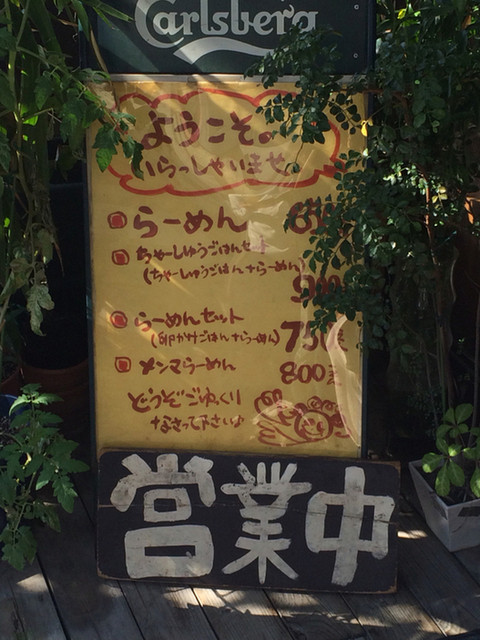 Carlsberg
ようこそ。
いらっしゃいませ。
らーめん
ちゃーしゅうごはんセット
(ちゃーしゅうごはん+らーめん)
らーめんセット
(卵かけごはん+らーめん) 750
メンマらーめん 800
どうぞごゆっくり
なさって下さい♪
営業中